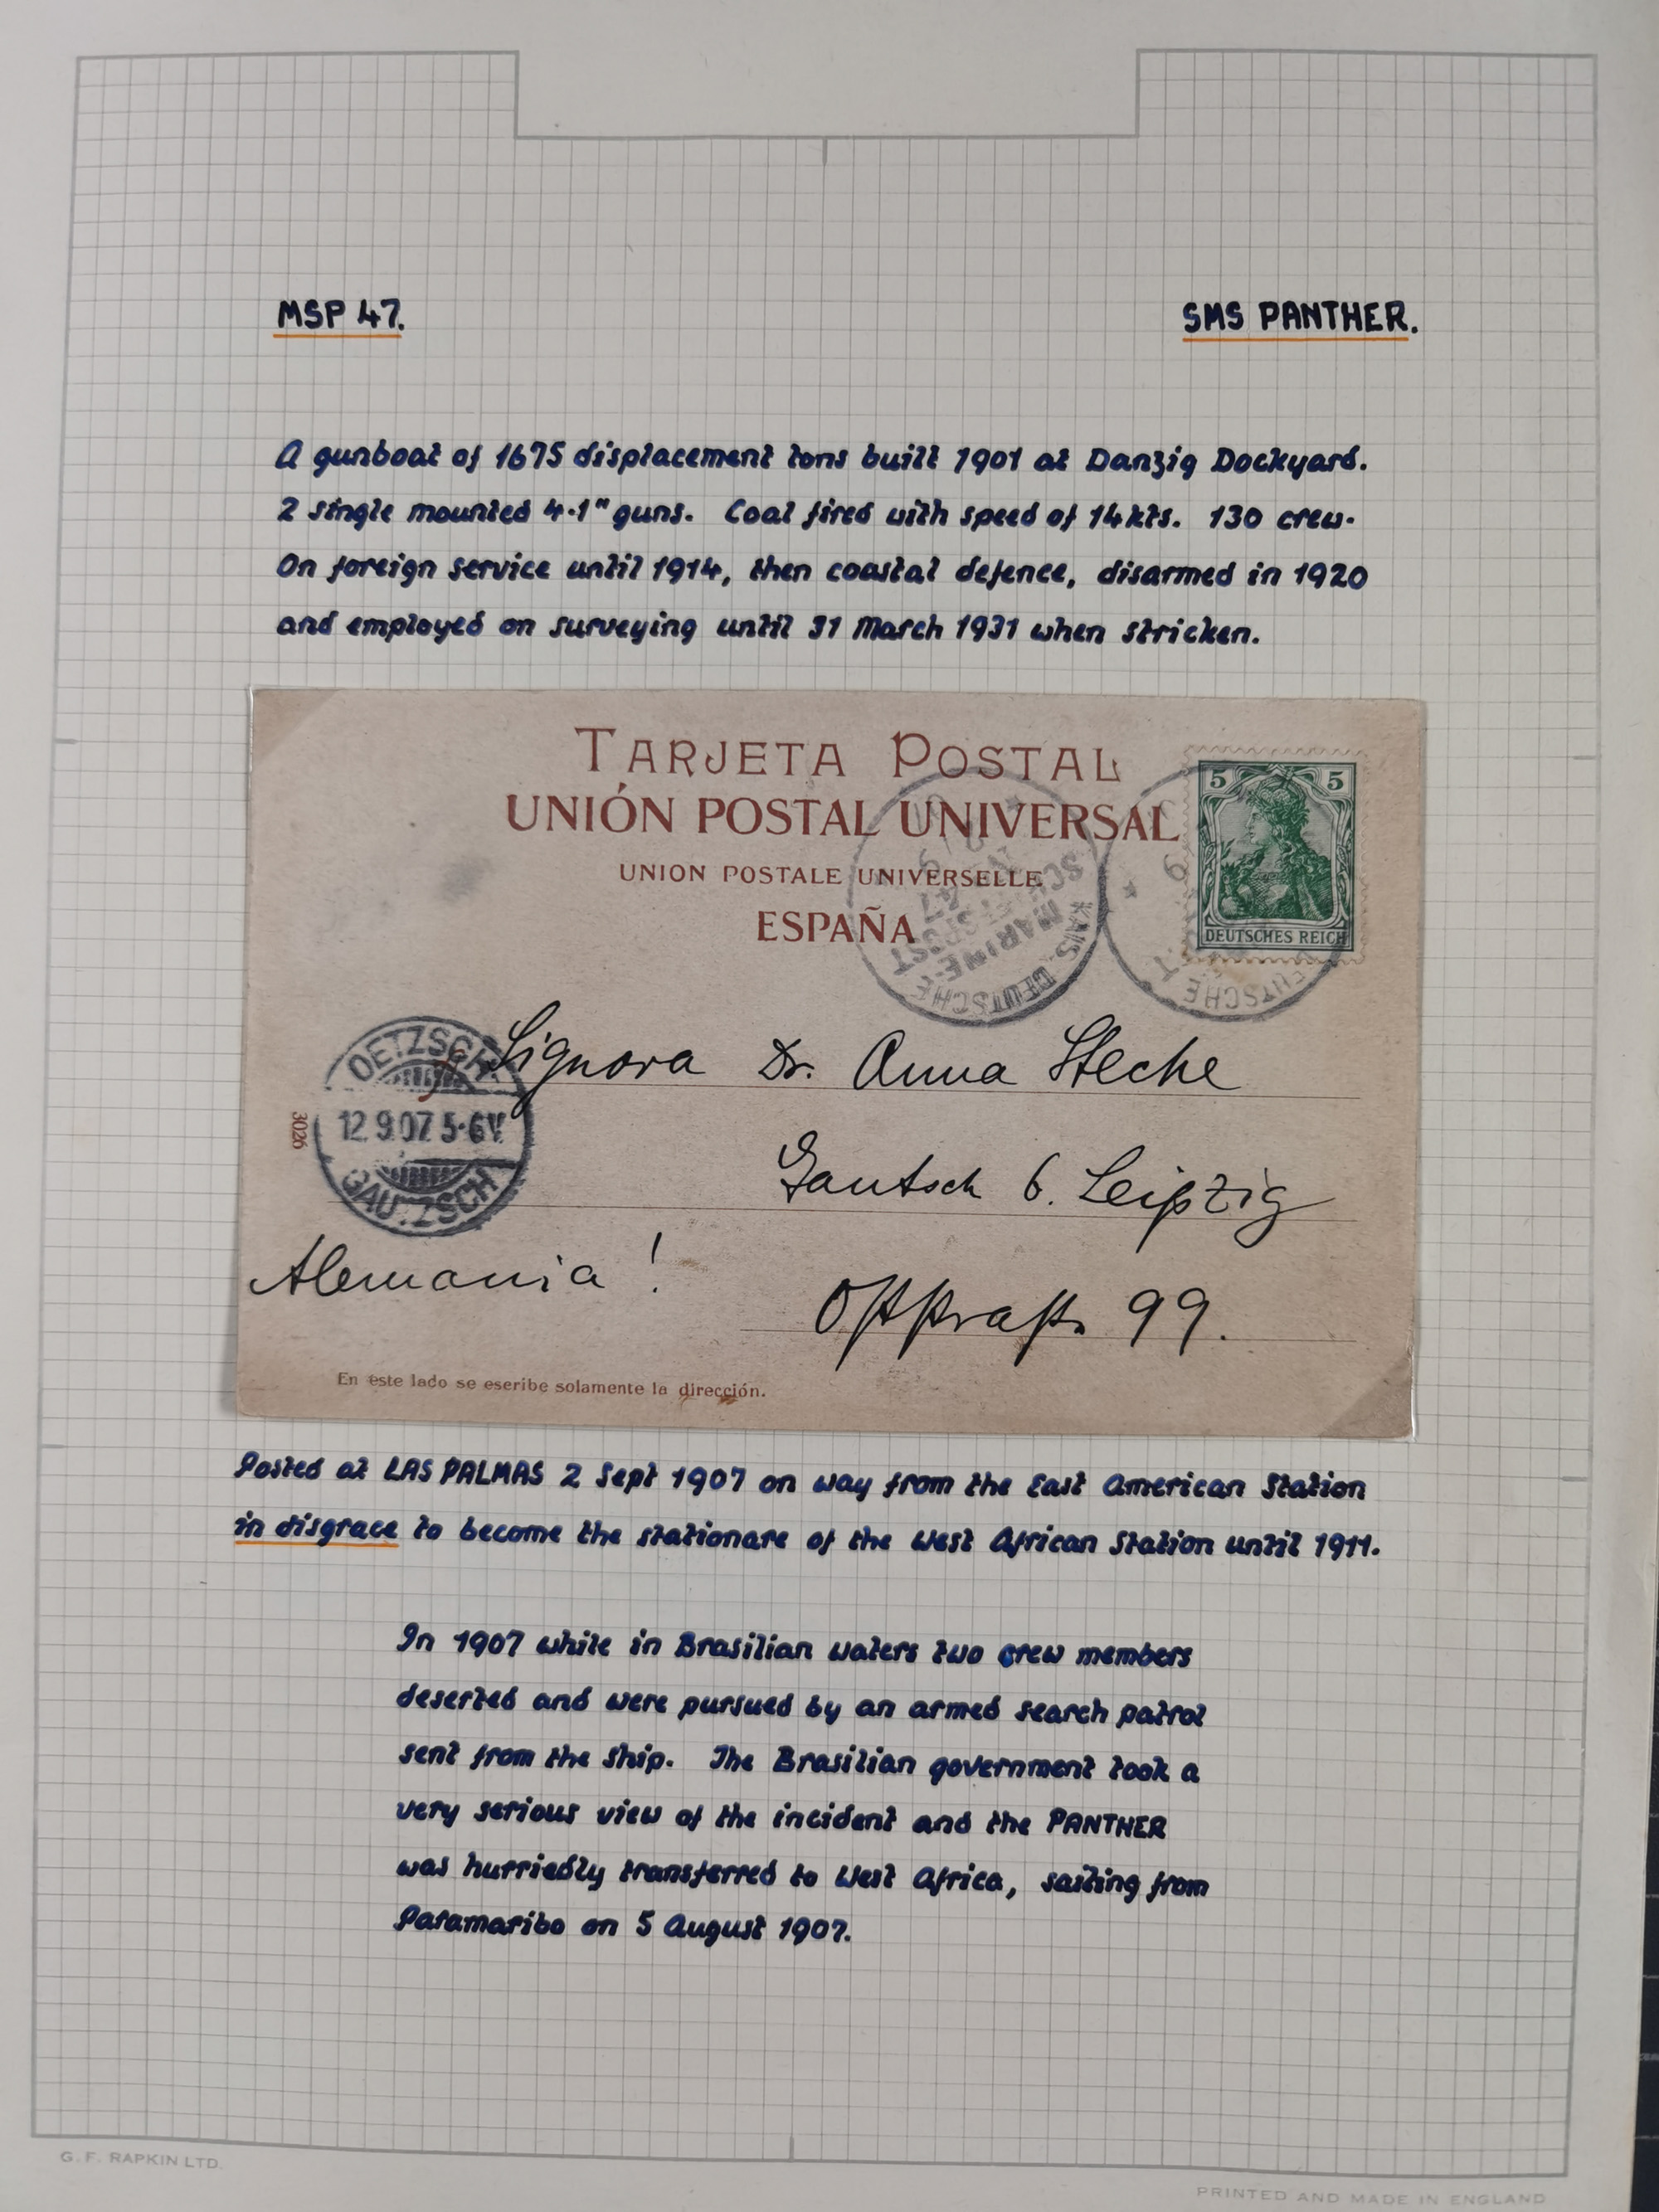 MSP 47.
SMS PANTHER.
A gunboat of 1675 displacement tons built 1901 at Danzig Dockyard.
2 single mounted 4·1" guns. Coal fired with speed of 14 kts. 130 crew.
On foreign service until 1914, then coastal defence, disarmed in 1920
and employed on surveying until 31 March 1931 when stricken.
TARJETA POSTAL
UNIÓN POSTAL UNIVERSAL
UNION POSTALE UNIVERSELLE
ESPAÑA
5 5
DEUTSCHES REICH
KAIS. DEUTSCHE
MARINE-
SCHIFFSPOST
47
OETZSCH
12.9.07 5-6V
GAUTZSCH
3026
Signora Dr. Anna Steche
Gautsch b. Leipzig
Alemania!
99.
En este lado se eseribe solamente la dirección.
Posted at LAS PALMAS 2 Sept 1907 on way from the East American Station
in disgrace to become the stationare of the West African Station until 1911.
In 1907 while in Brasilian waters two crew members
deserted and were pursued by an armed search patrol
sent from the ship. The Brasilian government took a
very serious view of the incident and the PANTHER
was hurriedly transferred to West Africa, sailing from
Paramaribo on 5 August 1907.
G. F. RAPKIN LTD.
PRINTED AND MADE IN ENGLAND